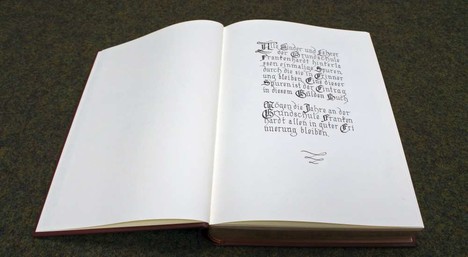 Alle Kinder und Lehrer
der Grundschule
Frankenhardt hinterla
ssen einmalige Spuren
durch die sie in Erinner
ung bleiben. Eine dieser
Spuren ist der Eintrag
in diesem Golden Buch
Mögen die Jahre an der
Grundschule Franken
hardt allen in guter Eri
nnerung bleiben.